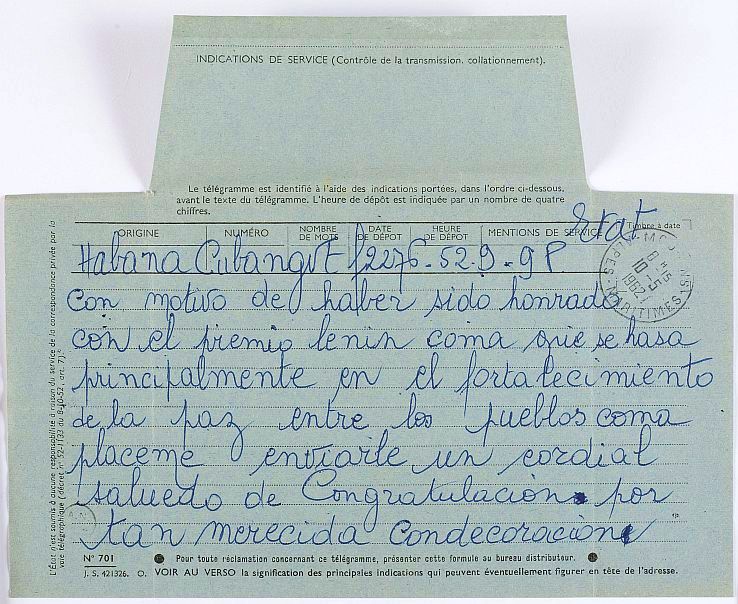 INDICATIONS DE SERVICE (Contrôle de la transmission, collationnement).
Le télégramme est identifié à l'aide des indications portées, dans l'ordre ci-dessous,
avant le texte du télégramme. L'heure de dépôt est indiquée par un nombre de quatre
chiffres.
Etat
ORIGINE NUMÉRO NOMBRE DE MOTS DATE DE DÉPÔT HEURE DE DÉPÔT MENTIONS DE SERVICE Timbre à date
Habana Cubangvt 2276-52.9-9P
con motivo de haber sido honrado
con el premio lenin coma que se basa
principalmente en el fortalecimiento
de la paz entre los pueblos coma
placeme enviarle un cordial
saluedo de Congratulación por
tan merecida condecoración
ALPES-MARITIMES
16-5
1962
L'État n'est soumis à aucune responsabilité à raison du service de la correspondance privée par la
voie télégraphique (décret n° 52-1133 du 8-10-52, art. 7).
N° 701 ● Pour toute réclamation concernant ce télégramme, présenter cette formule au bureau distributeur. ●
J. S. 421326. O. VOIR AU VERSO la signification des principales indications qui peuvent éventuellement figurer en tête de l'adresse.